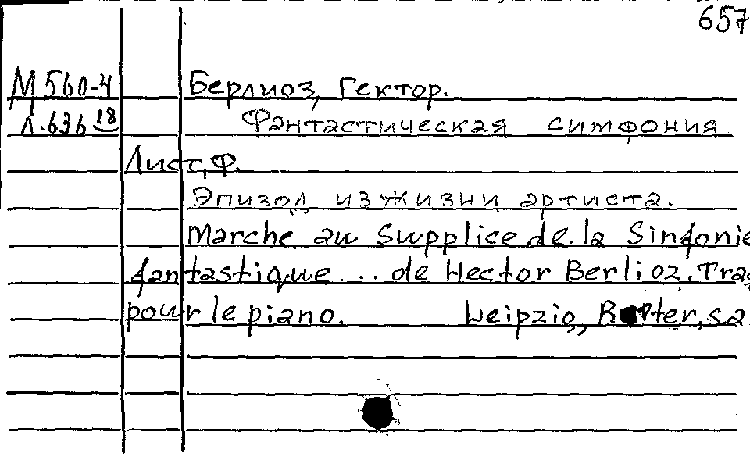 657
М 560-4 Берлиоз, Гектор.
Л.636 18 Фантастическая симфония
Лист, Ф.
Эпизод из жизни артиста.
Marche au Supplice de la Sinfonie
fantastique... de Hector Berlioz. Tra
pour le piano. Leipzig, s.a